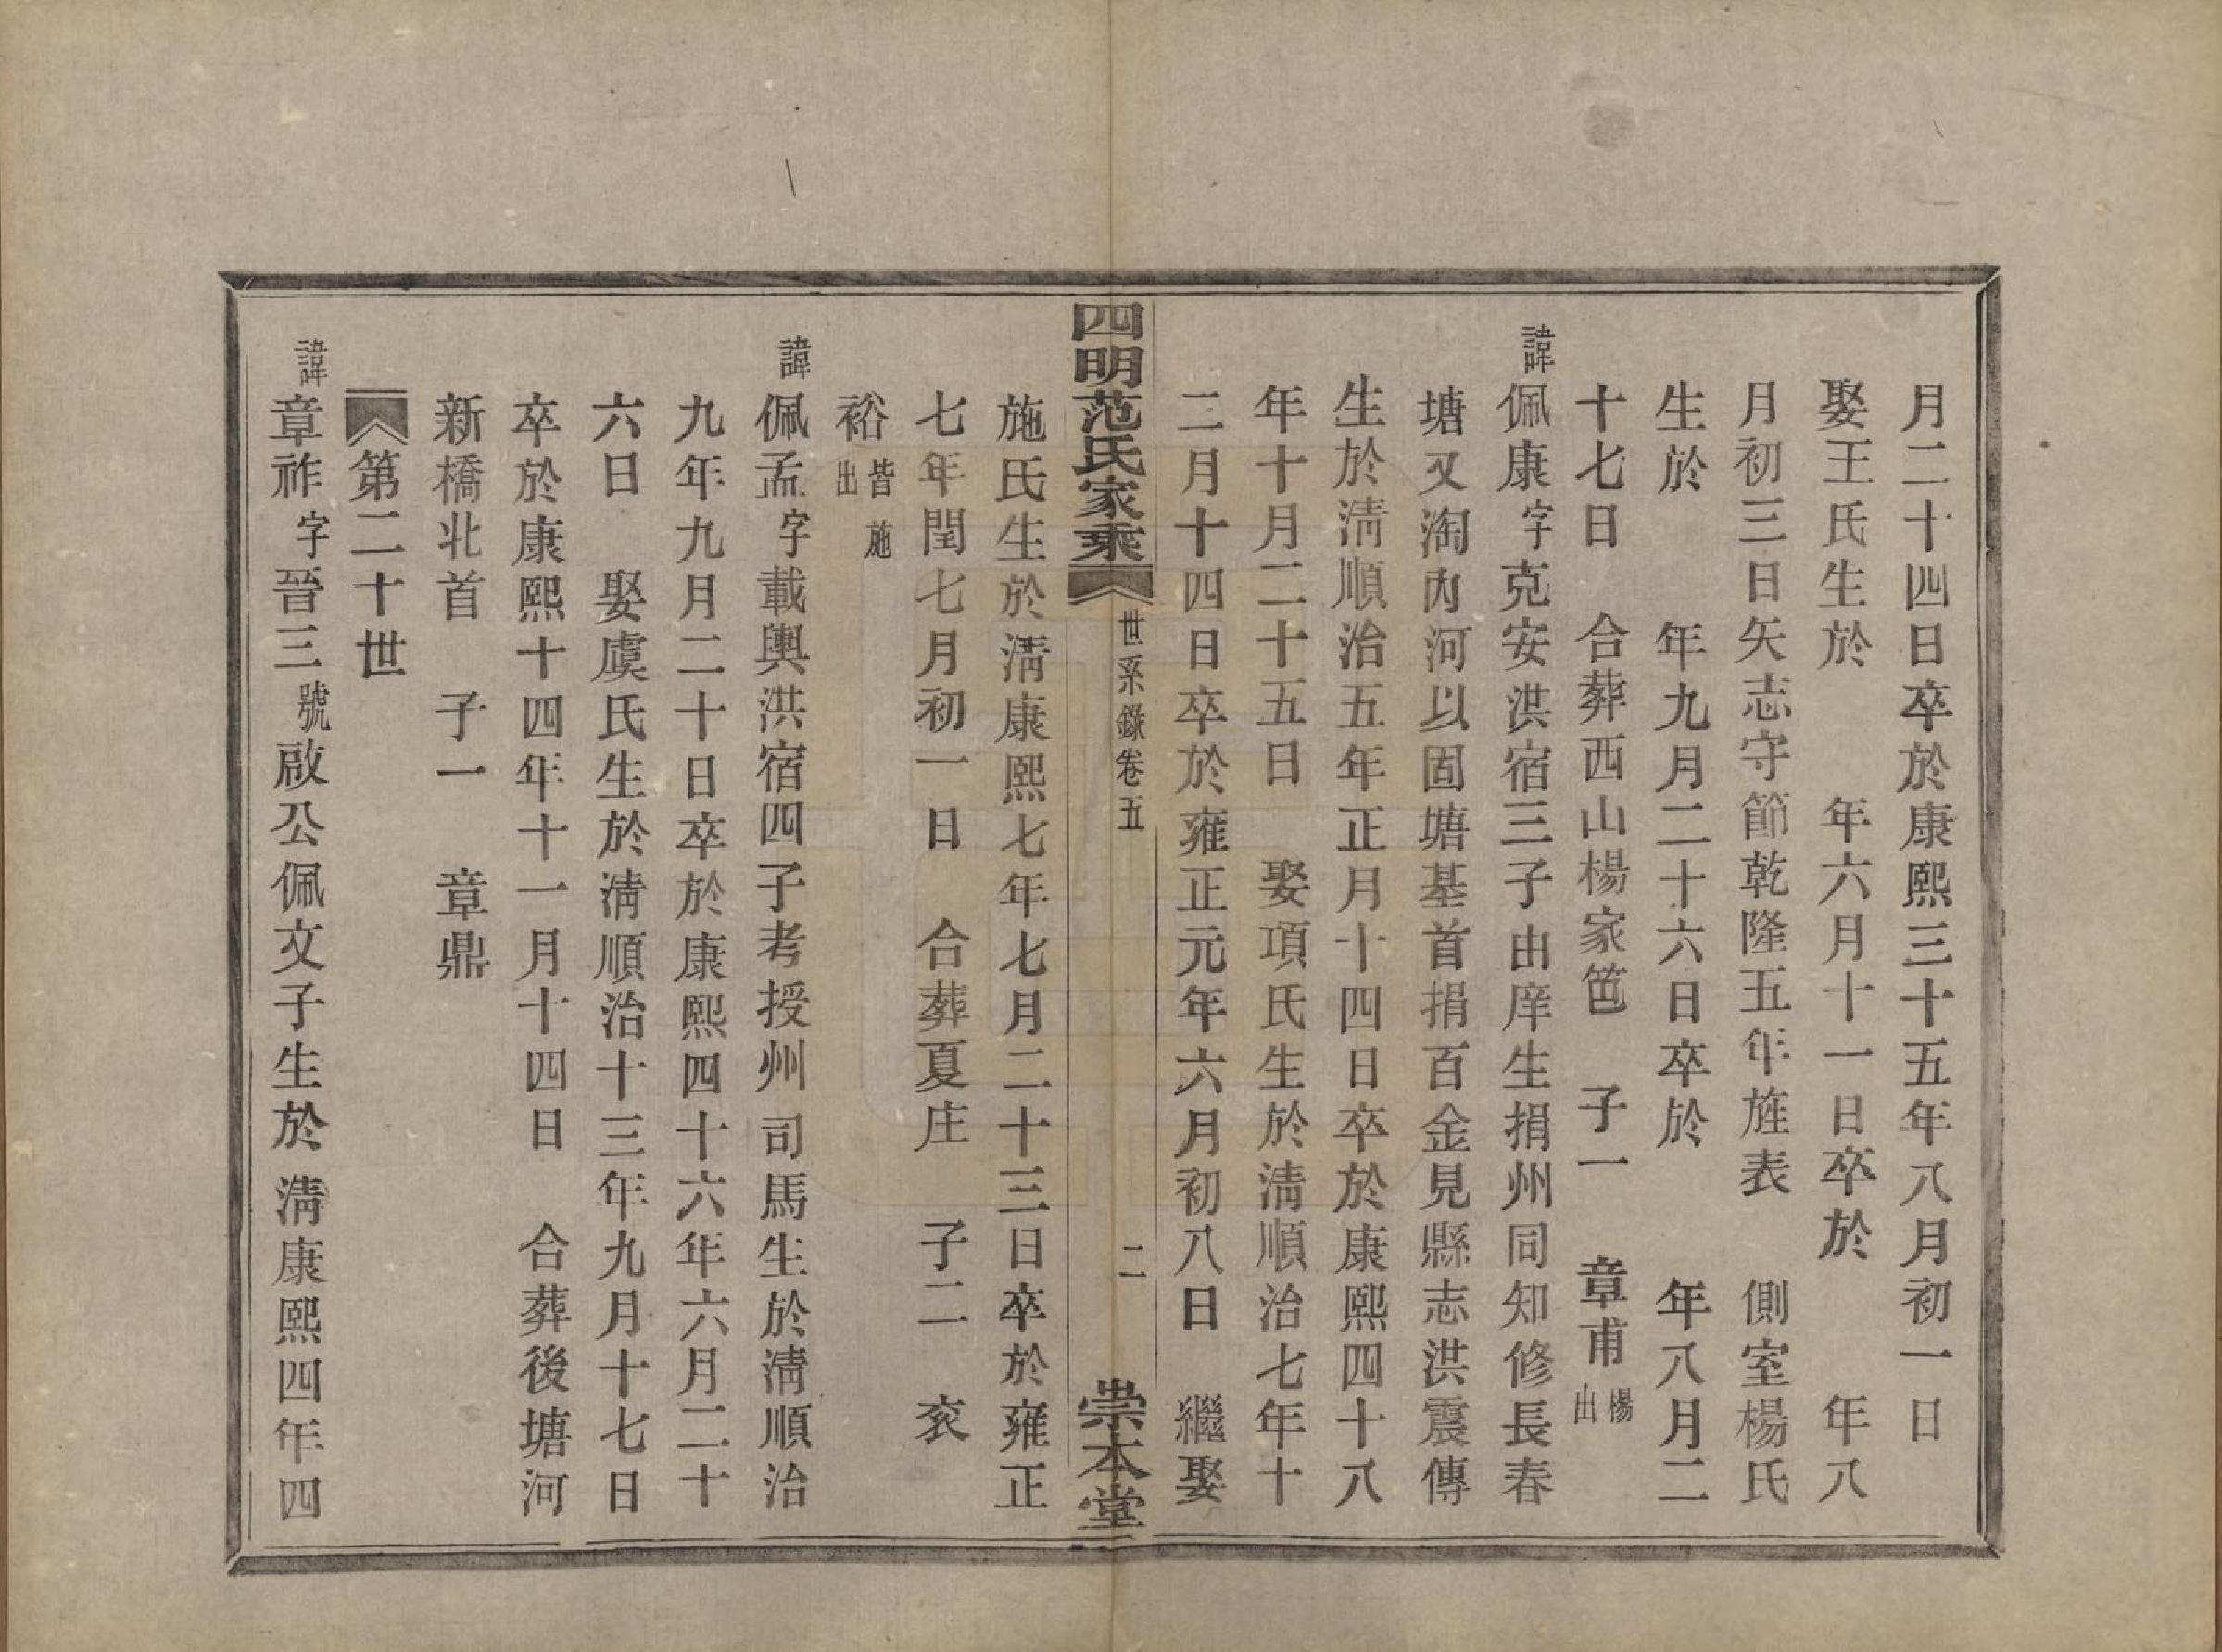 月二十四日卒於康熙三十五年八月初一日
娶王氏生於　　年六月十一日卒於　　年八
月初三日矢志守節乾隆五年旌表　側室楊氏
生於　　年九月二十六日卒於　　年八月二
十七日　合葬西山楊家笆　子一　章甫楊出
諱佩康字克安洪宿三子由庠生捐州同知修長春
塘又淘內河以固塘基首捐百金見縣志洪震傳
生於淸順治五年正月十四日卒於康熙四十八
年十月二十五日　娶項氏生於淸順治七年十
二月十四日卒於雍正元年六月初八日　繼娶
四明范氏家乘　世系錄卷五　二　崇本堂
施氏生於淸康熙七年七月二十三日卒於雍正
七年閏七月初一日　合葬夏庄　子二　袞
裕皆施出
諱佩孟字載輿洪宿四子考授州司馬生於淸順治
九年九月二十日卒於康熙四十六年六月二十
六日　娶虞氏生於淸順治十三年九月十七日
卒於康熙十四年十一月十四日　合葬後塘河
新橋北首　子一　章鼎
第二十世
諱章祚字晉三號啟公佩文子生於淸康熙四年四